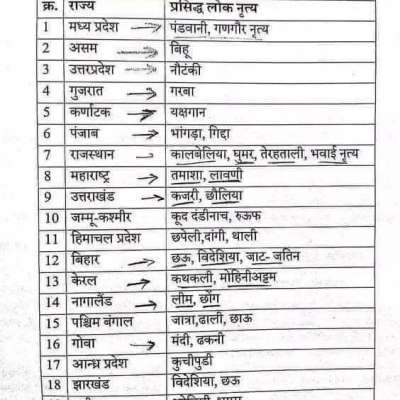 क्र. राज्य प्रसिद्ध लोक नृत्य
1 मध्य प्रदेश पंडवानी, गणगौर नृत्य
2 असम बिहू
3 उत्तरप्रदेश नौटंकी
4 गुजरात गरबा
5 कर्णाटक यक्षगान
6 पंजाब भांगड़ा, गिद्दा
7 राजस्थान कालबेलिया, घुमर, तेरहताली, भवाई नृत्य
8 महाराष्ट्र तमाशा, लावणी
9 उत्तराखंड कजरी, छौलिया
10 जम्मू-कश्मीर कूद दंडीनाच, रुऊफ
11 हिमाचल प्रदेश छपेली,दांगी, थाली
12 बिहार छऊ, विदेशिया, जाट- जतिन
13 केरल कथकली, मोहिनीअट्टम
14 नागालैंड लीम, छोंग
15 पश्चिम बंगाल जात्रा,ढाली, छाऊ
16 गोवा मंदी, ढकनी
17 आन्ध्र प्रदेश कुचीपुडी
18 झारखंड विदेशिया, छऊ